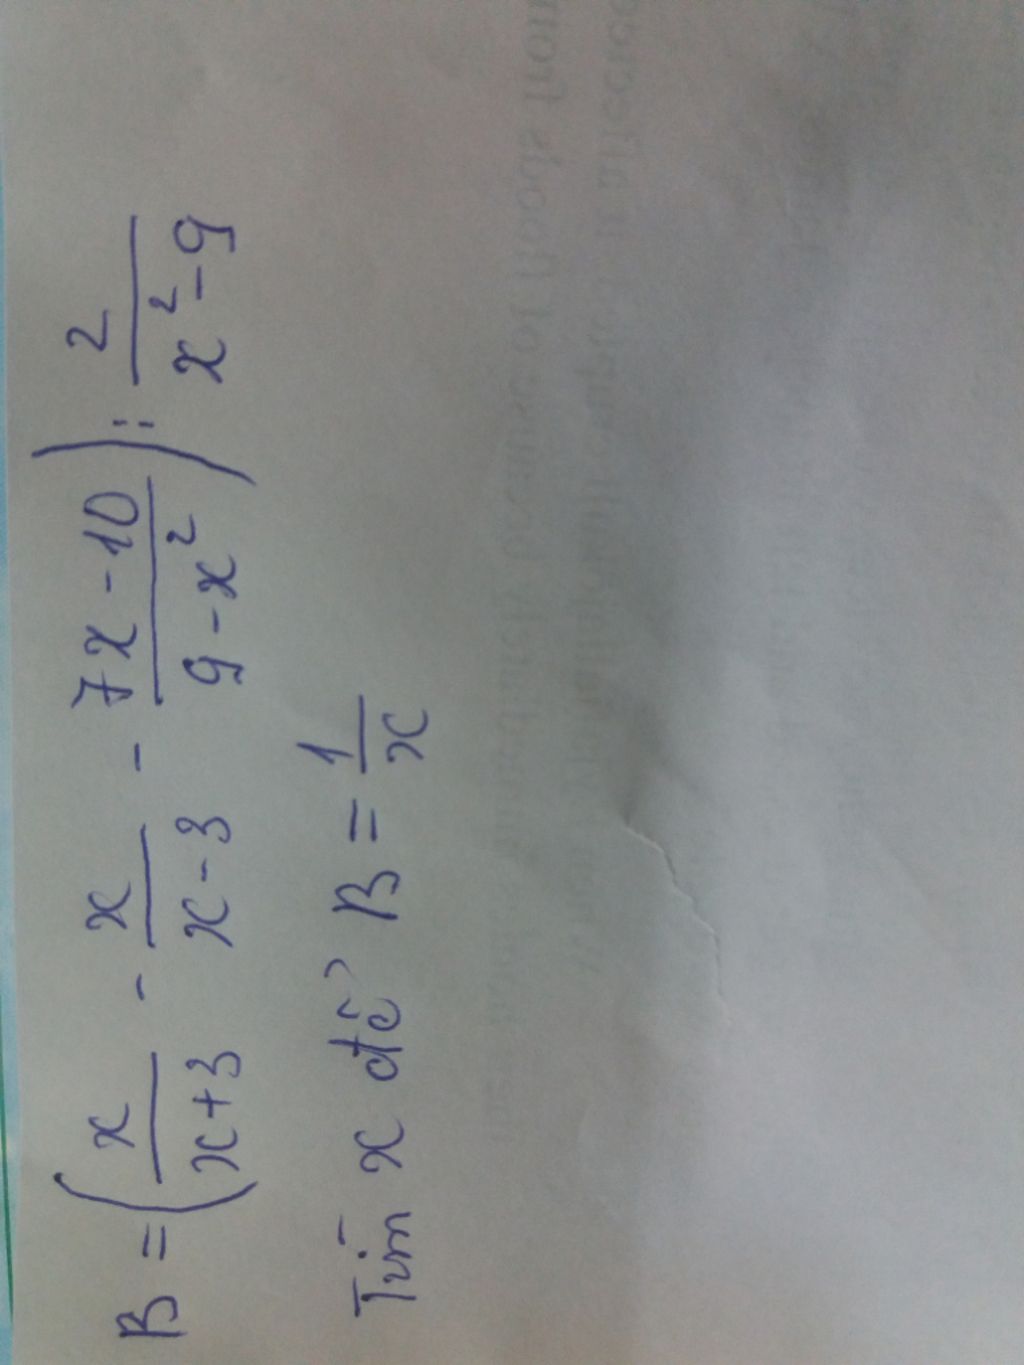 B = (x/(x+3) - x/(x-3) - (7x-10)/(9-x²)) : 2/(x²-9)
Tìm x để B = 1/x